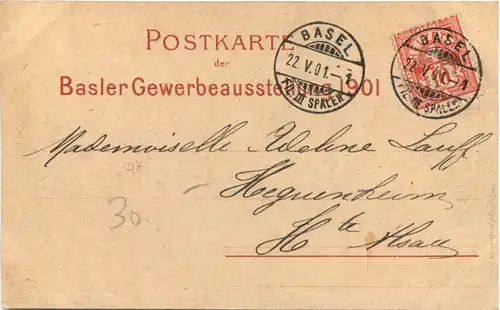 POSTKARTE
der
Basler Gewerbeausste 1901
BASEL
22.V.01.-1
FIL. III SPALEN
BASEL
22.V.01.-1
FIL. III SPALEN
Mademoiselle Lauff
Hegenheim
Hte Alsace
30